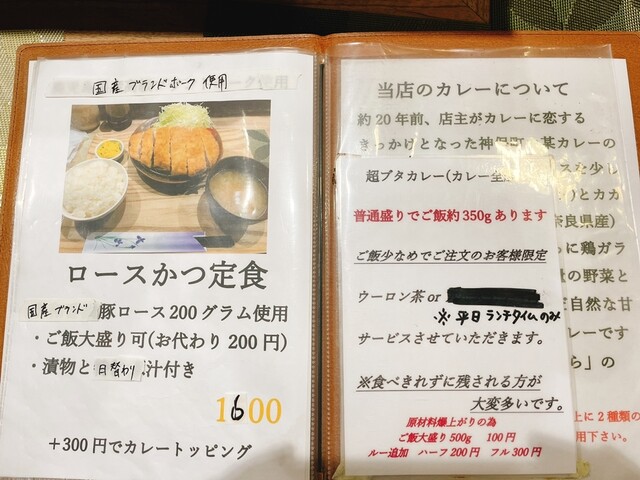 国産ブランドポーク使用
ロースかつ定食
国産ブランド豚ロース200グラム使用
・ご飯大盛り可(お代わり200円)
・漬物と日替わり汁付き
1600
+300円でカレートッピング
当店のカレーについて
約20年前、店主がカレーに恋する
きっかけとなった神保町 某カレーの
超ブタカレー(カレー全 スを少し
)とカカ
奈良県産)
普通盛りでご飯約350gあります
に鶏ガラ
ご飯少なめでご注文のお客様限定
の野菜と
ウーロン茶or
自然な甘
※平日ランチタイムのみ
カレーです
サービスさせていただきます。
ら」の
※食べきれずに残される方が
大変多いです。
上に2種類の
原材料爆上がりの為
用下さい。
ご飯大盛り500g 100円
ルー追加 ハーフ200円 フル300円